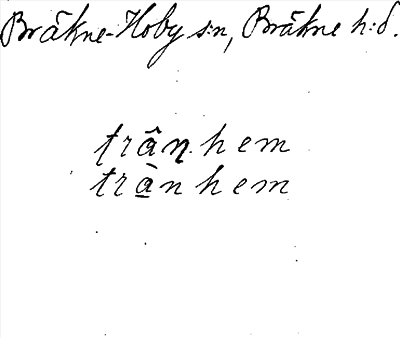 Bräkne-Hoby s:n, Bräkne h:d.
trân̥hem
trà̱nhem